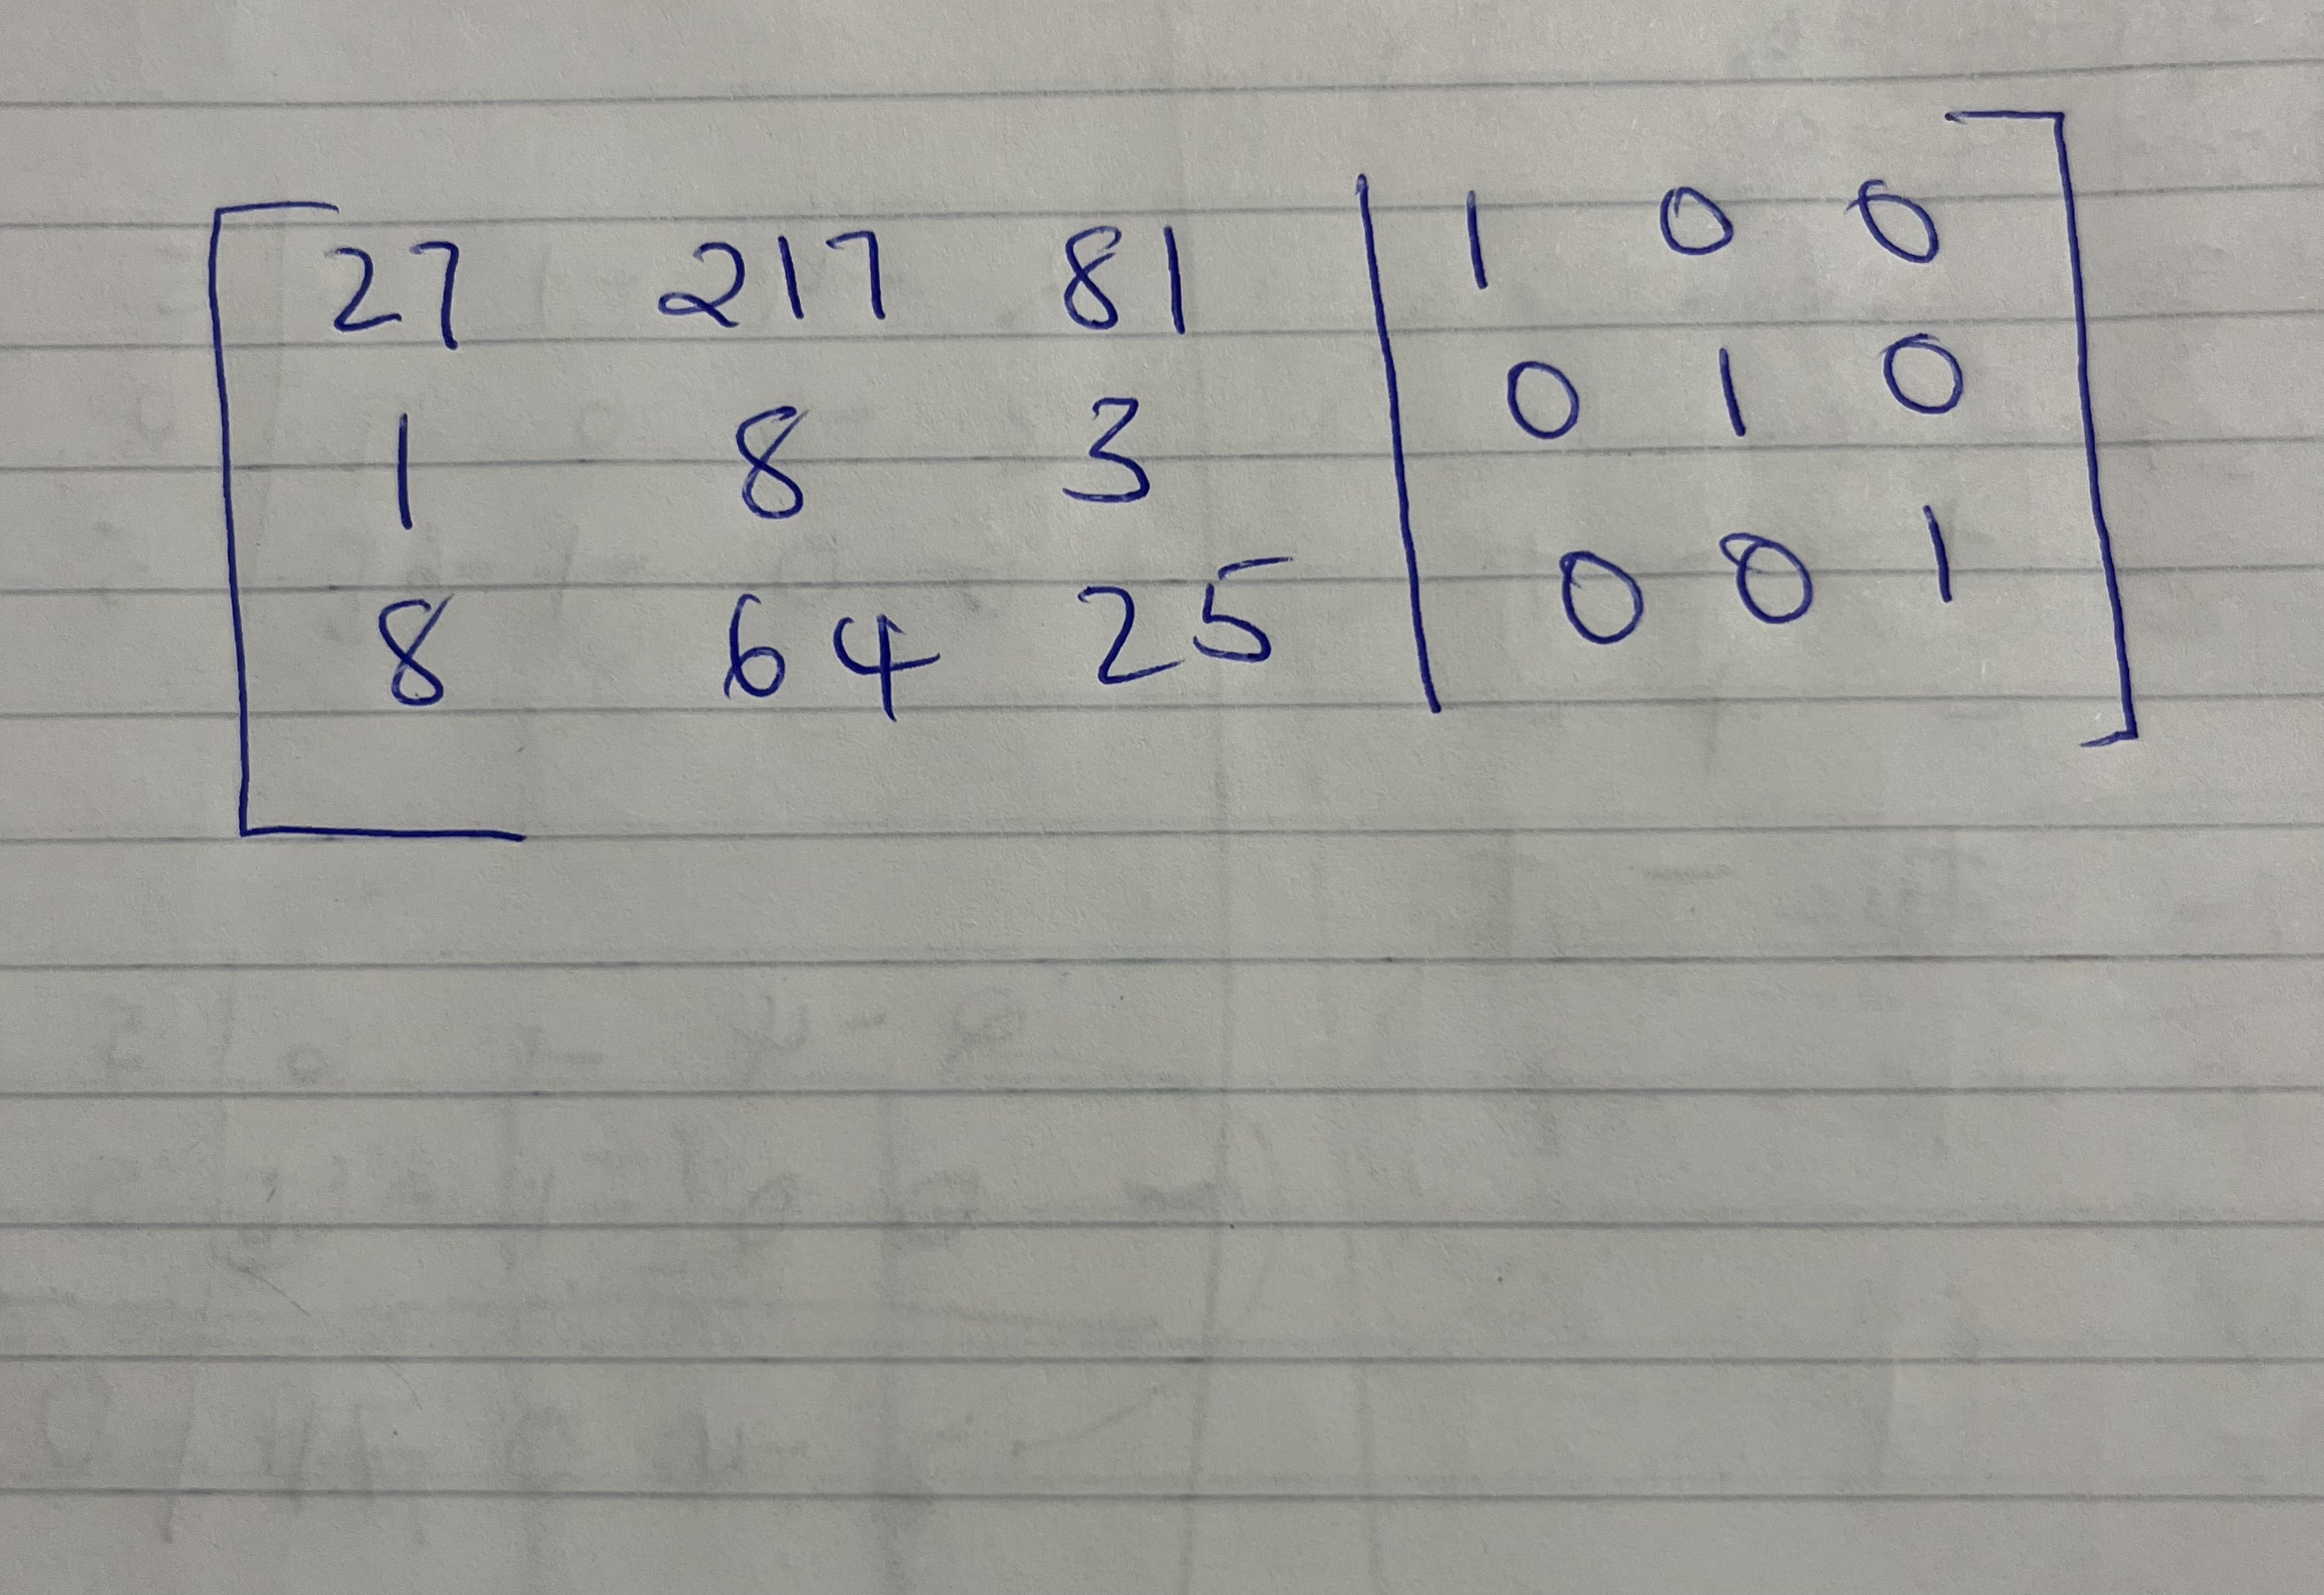 27 217 81 | 1 0 0
1 8 3 | 0 1 0
8 64 25 | 0 0 1